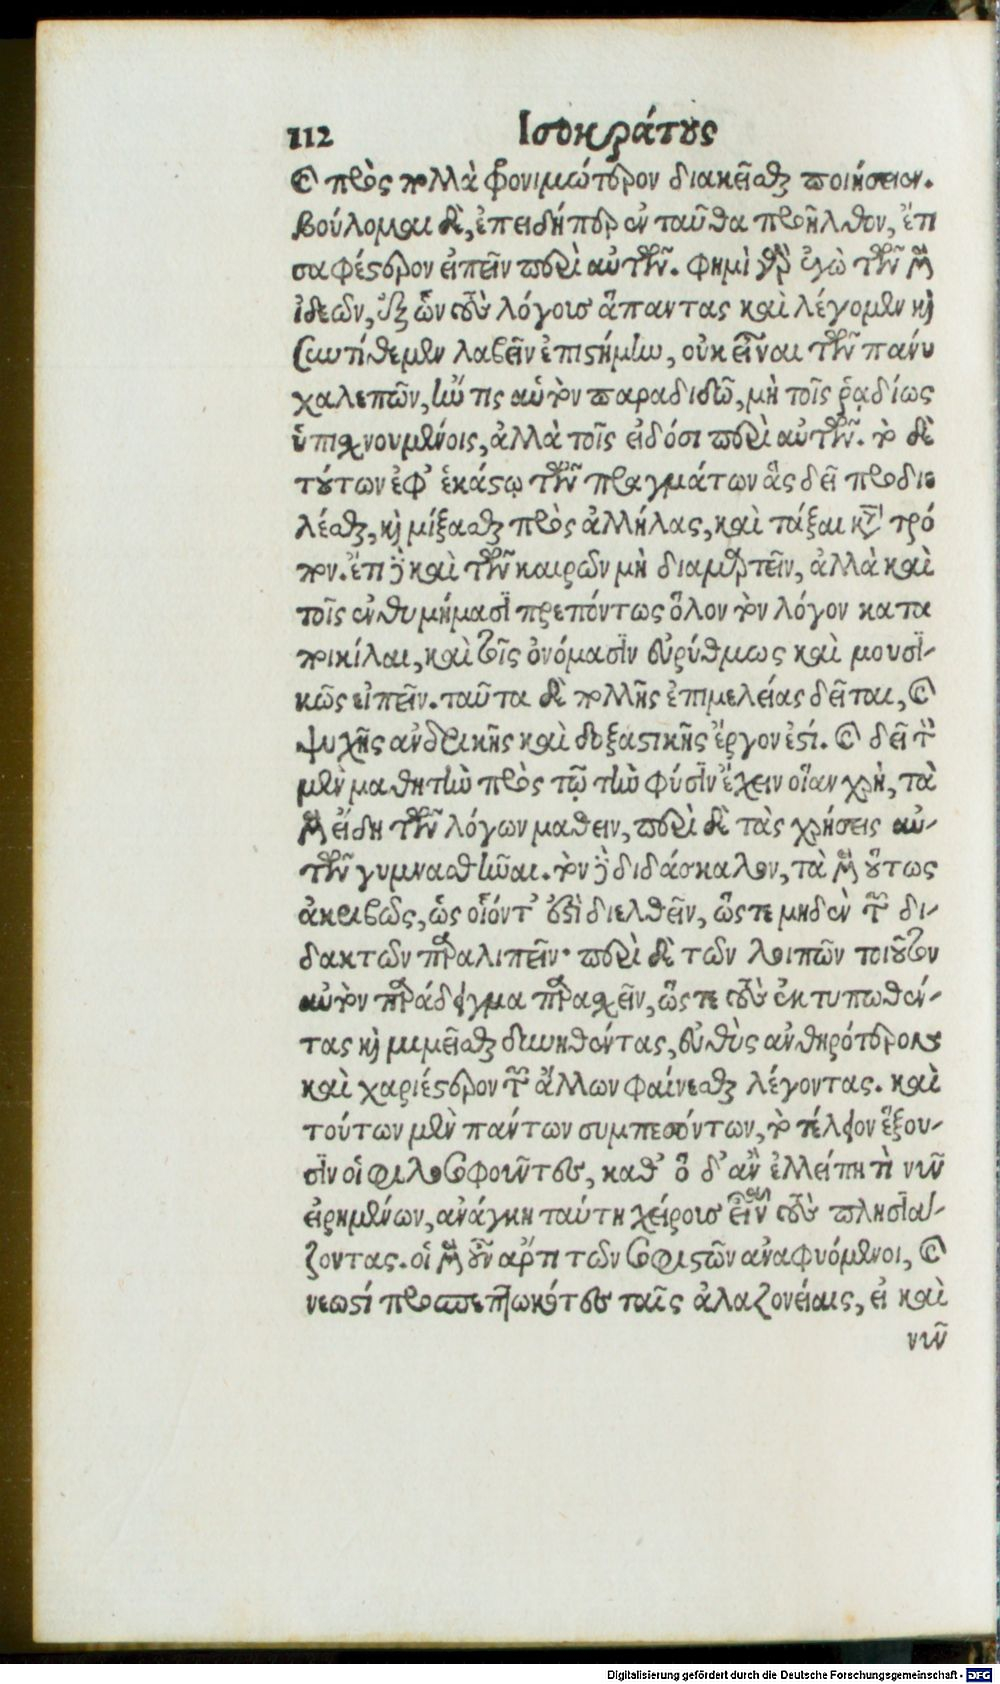 112 Ἰσοκράτους
καὶ πρὸς πολλὰ φρονιμώτερον διακεῖσθαι ποιήσειεν.
βούλομαι δὲ, ἐπειδήπερ ἐν ταῦθα προῆλθον, ἔτι
σαφέστερον εἰπεῖν περὶ αὐτῶν. φημὶ γὰρ ἐγὼ τῶν μὲν
ἰδεῶν, ἐξ ὧν τοὺς λόγους ἅπαντας καὶ λέγομεν καὶ
συντίθεμεν λαβεῖν ἐπιστήμην, οὐκ εἶναι τῶν πάνυ
χαλεπῶν, ἤν τις αὑτὸν παραδιδῷ, μὴ τοῖς ῥᾳδίως
ὑπισχνουμένοις, ἀλλὰ τοῖς εἰδόσι περὶ αὐτῶν. τὸ δὲ
τούτων ἐφ' ἑκάστῳ τῶν πραγμάτων ἃς δεῖ προδιε
λέσθαι, καὶ μίξασθαι πρὸς ἀλλήλας, καὶ τάξαι κατὰ τρό
πον. ἔτι δὲ καὶ τῶν καιρῶν μὴ διαμαρτεῖν, ἀλλὰ καὶ
τοῖς ἐνθυμήμασι πρεπόντως ὅλον τὸν λόγον κατα
ποικίλαι, καὶ τοῖς ὀνόμασιν εὐρύθμως καὶ μουσι-
κῶς εἰπεῖν. ταῦτα δὲ πολλῆς ἐπιμελείας δεῖται, καὶ
ψυχῆς ἀνδρικῆς καὶ δοξαστικῆς ἔργον ἐστί. καὶ δεῖ τὸν
μὲν μαθητὴν πρὸς τῷ τὴν φύσιν ἔχειν οἵαν χρὴ, τὰ
μὲν εἴδη τῶν λόγων μαθεῖν, περὶ δὲ τὰς χρήσεις αὐ-
τῶν γυμνασθῆναι. τὸν δὲ διδάσκαλον, τὰ μὲν οὕτως
ἀκριβῶς, ὡς οἷόντ' ἐστὶ διελθεῖν, ὥστε μηδὲν τῶν δι-
δακτῶν παραλιπεῖν· περὶ δὲ τῶν λοιπῶν τοιοῦτον
αὑτὸν παράδειγμα παρασχεῖν, ὥστε τοὺς ἐκτυπωθέν-
τας καὶ μιμεῖσθαι δυνηθέντας, εὐθὺς ἀνθηρότερον
καὶ χαριέστερον τῶν ἄλλων φαίνεσθαι λέγοντας. καὶ
τούτων μὲν πάντων συμπεσόντων, τὸ τέλειον ἕξου-
σιν οἱ φιλοσοφοῦντες, καθ' ὃ δ' ἂν ἐλλείπῃ τι νῦν
εἰρημένων, ἀνάγκη ταύτῃ χείρους εἶναι τοὺς πλησιά-
ζοντας. οἱ μὲν οὖν ἄρτι τῶν σοφιστῶν ἀναφυόμενοι, καὶ
νεωστί προσπεπτωκότες ταῖς ἀλαζονείαις, εἰ καὶ
νῦν
Digitalisierung gefördert durch die Deutsche Forschungsgemeinschaft - DFG